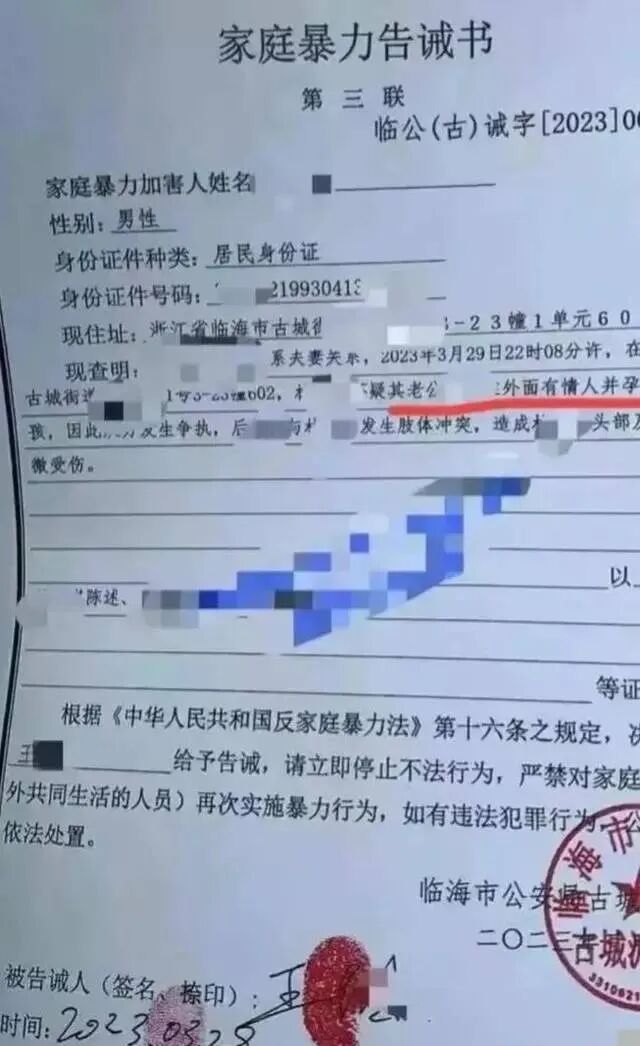 家庭暴力告诫书
第三联
临公(古)诫字[2023]0
家庭暴力加害人姓名
性别：男性
身份证件种类：居民身份证
身份证件号码：219930413
现住址：浙江省临海市古城街 -23幢1单元60
现查明： 系夫妻关系，2023年3月29日22时08分许，在
古城街道 602， 疑其老公 外面有情人并孕
孩，因此 发生争执，后 与 发生肢体冲突，造成 头部
微受伤。
以
陈述、
等证
根据《中华人民共和国反家庭暴力法》第十六条之规定，决
王 给予告诫，请立即停止不法行为，严禁对家庭
外共同生活的人员）再次实施暴力行为，如有违法犯罪行为，公
依法处置。
临海市公安局古城
二〇二三年
临海市
古城派
3310621
被告诫人（签名、捺印）：王
时间：2023.03.28